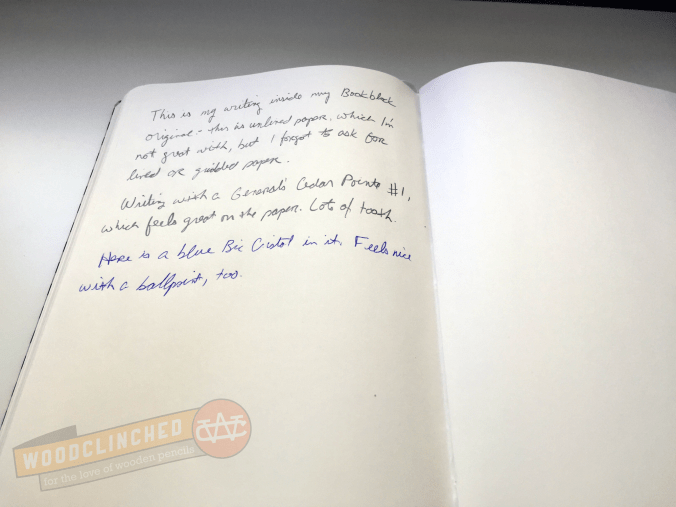 This is my writing inside my Bookblock
original - this is unlined paper, which I'm
not great with, but I forgot to ask for
lined or gridded paper.
Writing with a General's Cedar Pointe #1,
which feels great on the paper. Lots of tooth.
Here is a blue Bic Cristal in it. Feels nice
with a ballpoint, too.
WOODCLINCHED
for the love of wooden pencils